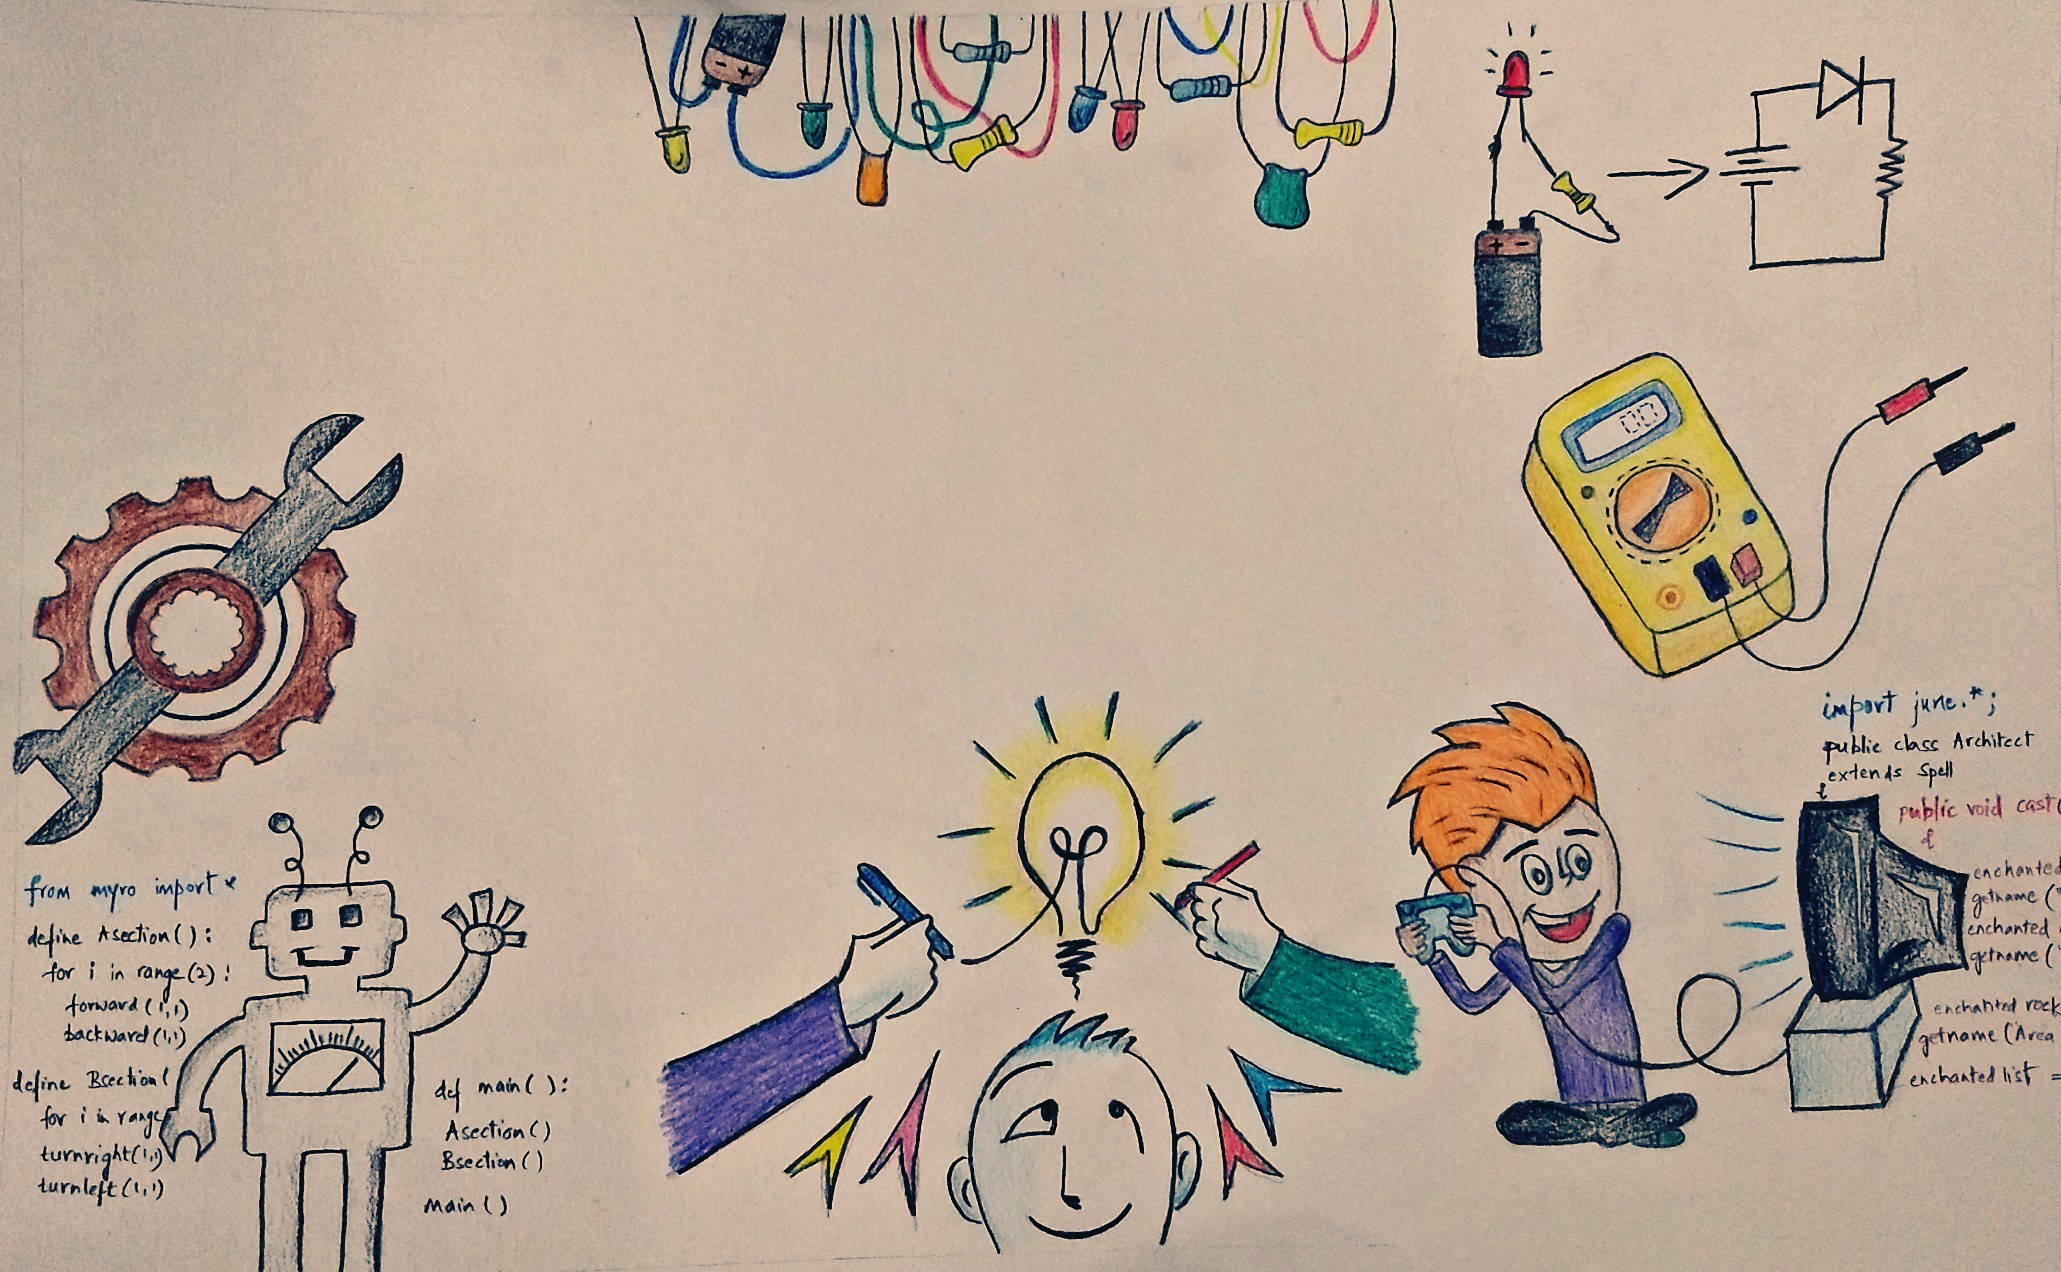 from myro import *
define Asection():
for i in range(2):
forward(1,1)
backward(1,1)
define Bsection(
for i in range
turnright(1,1)
turnleft(1,1)
def main():
Asection()
Bsection()
main()
- +
+ -
00
import june.*;
public class Architect
extends Spell
{
public void cast(
{
enchanted
getname("
enchanted
getname("
enchanted rock
getname (Area
enchanted list =